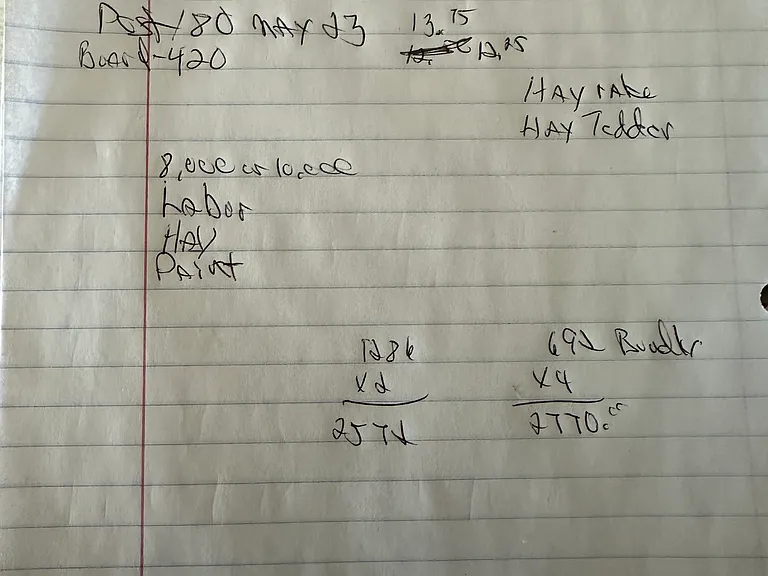 Post 180 MAY 23 13.75
Board-420 12.25
HAY rake
HAY Tedder
8,000 or 10,000
Labor
HAY
PAint
1286 692 Bundler
x2 x4
2572 2770.00